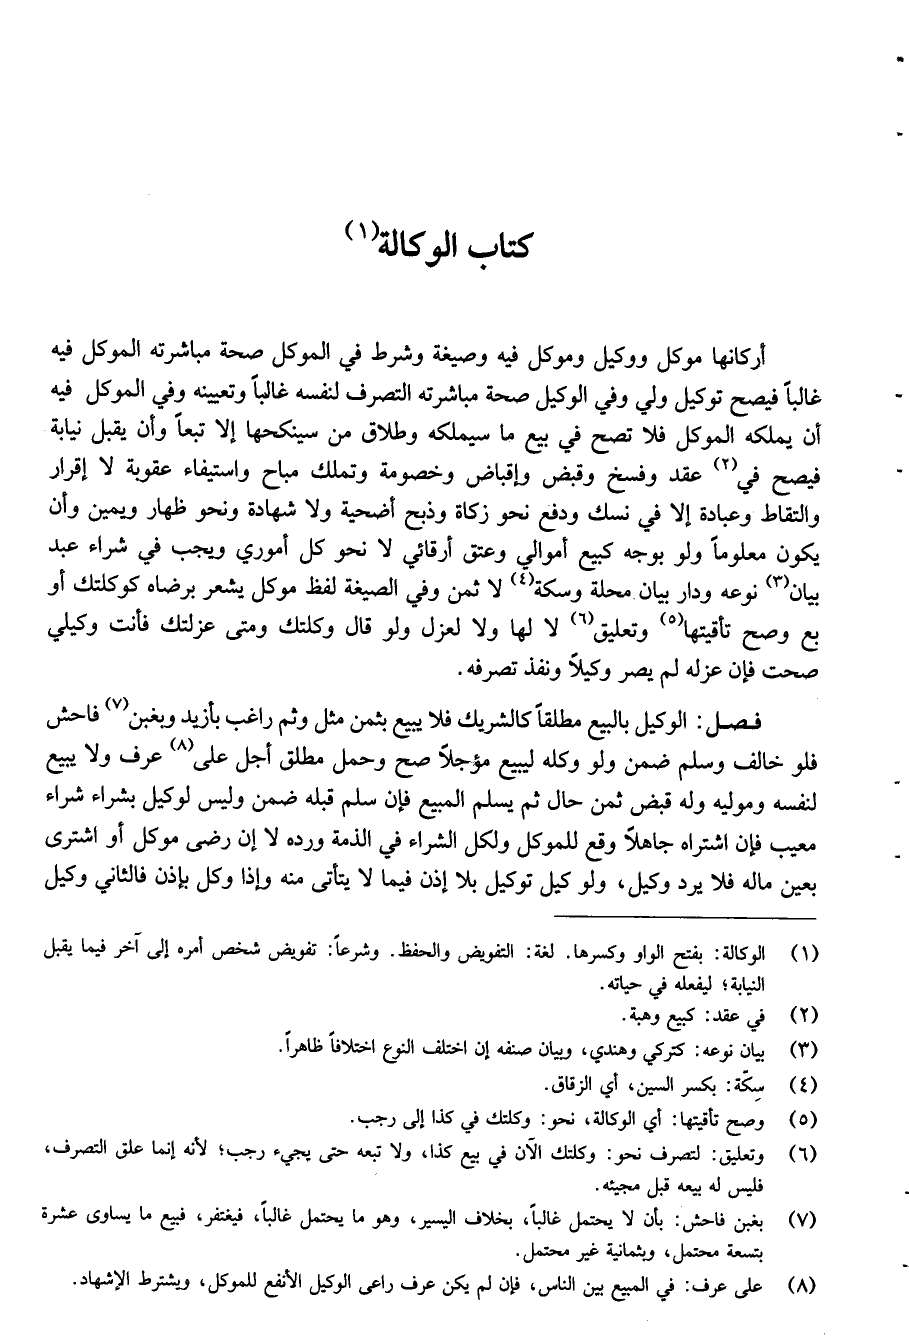 كتاب الوكالة(١)
أركانها موكل ووكيل وموكل فيه وصيغة وشرط في الموكل صحة مباشرته الموكل فيه
غالباً فيصح توكيل ولي وفي الوكيل صحة مباشرته التصرف لنفسه غالباً وتعيينه وفي الموكل فيه
أن يملكه الموكل فلا تصح في بيع ما سيملكه وطلاق من سينكحها إلا تبعاً وأن يقبل نيابة
فيصح في(٢) عقد وفسخ وقبض وإقباض وخصومة وتملك مباح واستيفاء عقوبة لا إقرار
والتقاط وعبادة إلا في نسك ودفع نحو زكاة وذبح أضحية ولا شهادة ونحو ظهار ويمين وأن
يكون معلوماً ولو بوجه كبيع أموالي وعتق أرقائي لا نحو كل أموري ويجب في شراء عبد
بيان(٣) نوعه ودار بيان محلة وسكة(٤) لا ثمن وفي الصيغة لفظ موكل يشعر برضاه كوكلتك أو
بع وصح تأقيتها(٥) وتعليق(٦) لا لها ولا لعزل ولو قال وكلتك ومتى عزلتك فأنت وكيلي
صحت فإن عزله لم يصر وكيلاً ونفذ تصرفه.
فـصـل: الوكيل بالبيع مطلقاً كالشريك فلا يبيع بثمن مثل وثم راغب بأزيد وبغبن(٧) فاحش
فلو خالف وسلم ضمن ولو وكله ليبيع مؤجلاً صح وحمل مطلق أجل على(٨) عرف ولا يبيع
لنفسه وموليه وله قبض ثمن حال ثم يسلم المبيع فإن سلم قبله ضمن وليس لوكيل بشراء شراء
معيب فإن اشتراه جاهلاً وقع للموكل ولكل الشراء في الذمة ورده لا إن رضى موكل أو اشترى
بعين ماله فلا يرد وكيل، ولو كيل توكيل بلا إذن فيما لا يتأتى منه وإذا وكل بإذن فالثاني وكيل
(١) الوكالة: بفتح الواو وكسرها. لغة: التفويض والحفظ. وشرعاً: تفويض شخص أمره إلى آخر فيما يقبل
النيابة؛ ليفعله في حياته.
(٢) في عقد: كبيع وهبة.
(٣) بيان نوعه: كتركي وهندي، وبيان صنفه إن اختلف النوع اختلافاً ظاهراً.
(٤) سِكّة: بكسر السين، أي الزقاق.
(٥) وصح تأقيتها: أي الوكالة، نحو: وكلتك في كذا إلى رجب.
(٦) وتعليق: لتصرف نحو: وكلتك الآن في بيع كذا، ولا تبعه حتى يجيء رجب؛ لأنه إنما علق التصرف،
فليس له بيعه قبل مجيئه.
(٧) بغبن فاحش: بأن لا يحتمل غالباً، بخلاف اليسير، وهو ما يحتمل غالباً، فيغتفر، فبيع ما يساوى عشرة
بتسعة محتمل، وبثمانية غير محتمل.
(٨) على عرف: في المبيع بين الناس، فإن لم يكن عرف راعى الوكيل الأنفع للموكل، ويشترط الإشهاد.